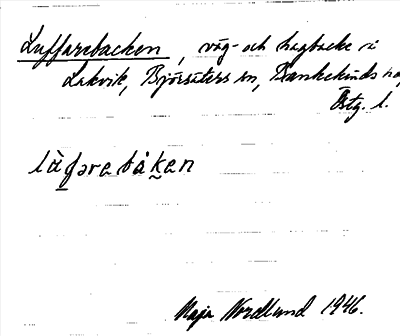 Luffarebacken, väg- och hagbacke i
Lakvik, Björsäters sn, Bankekinds hd,
Östg. l.
làfarebåkan
Maja Nordlund 1946.